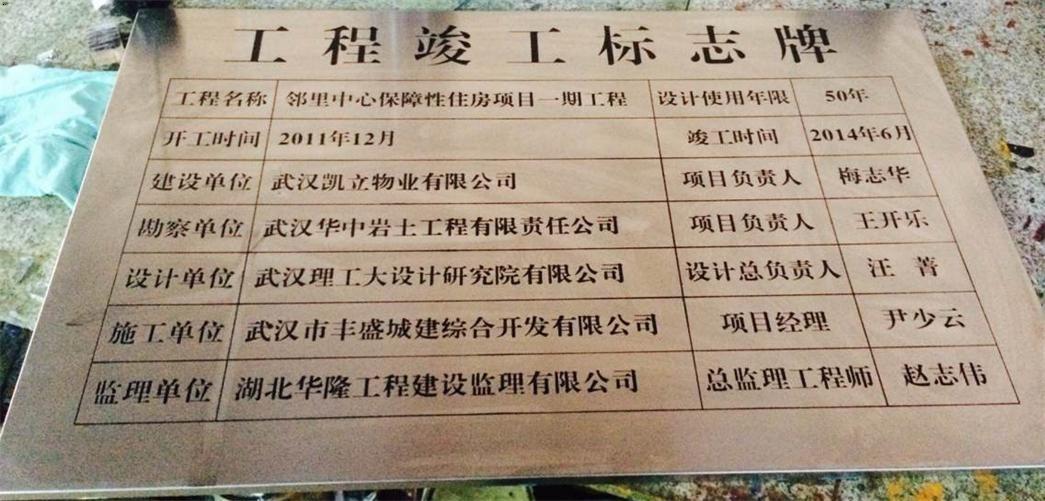 工程竣工标志牌
工程名称 邻里中心保障性住房项目一期工程 设计使用年限 50年
开工时间 2011年12月 竣工时间 2014年6月
建设单位 武汉凯立物业有限公司 项目负责人 梅志华
勘察单位 武汉华中岩土工程有限责任公司 项目负责人 王开乐
设计单位 武汉理工大设计研究院有限公司 设计总负责人 汪菁
施工单位 武汉市丰盛城建综合开发有限公司 项目经理 尹少云
监理单位 湖北华隆工程建设监理有限公司 总监理工程师 赵志伟